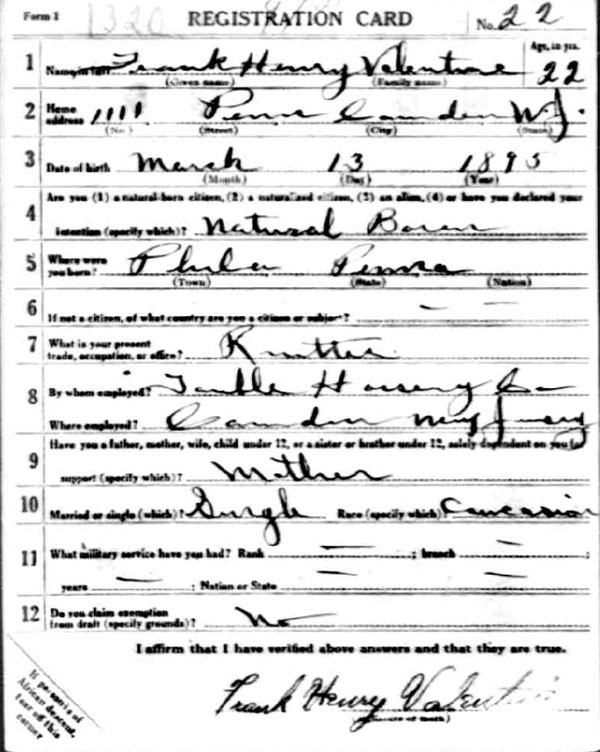 Form 1 1320 REGISTRATION CARD No. 22
1 Name in full Frank Henry Valentine Age, in yrs. 22
(Given name) (Family name)
2 Home address 1111 Penn Camden N.J.
(No.) (Street) (City) (State)
3 Date of birth March 13 1895
(Month) (Day) (Year)
4 Are you (1) a natural-born citizen, (2) a naturalized citizen, (3) an alien, (4) or have you declared your
intention (specify which)? Natural Born
5 Where were you born? Phila Penna
(Town) (State) (Nation)
6 If not a citizen, of what country are you a citizen or subject? — —
7 What is your present trade, occupation, or office? Knitter
8 By whom employed? Hosiery Co
Where employed? Camden New Jersey
9 Have you a father, mother, wife, child under 12, or a sister or brother under 12, solely dependent on you for
support (specify which)? Mother
10 Married or single (which)? Single Race (specify which)? Caucasian
11 What military service have you had? Rank — ; branch — ;
years — ; Nation or State — —
12 Do you claim exemption from draft (specify grounds)? No
I affirm that I have verified above answers and that they are true.
Frank Henry Valentine
(Signature or mark)
If person is of
African descent,
tear off this
corner